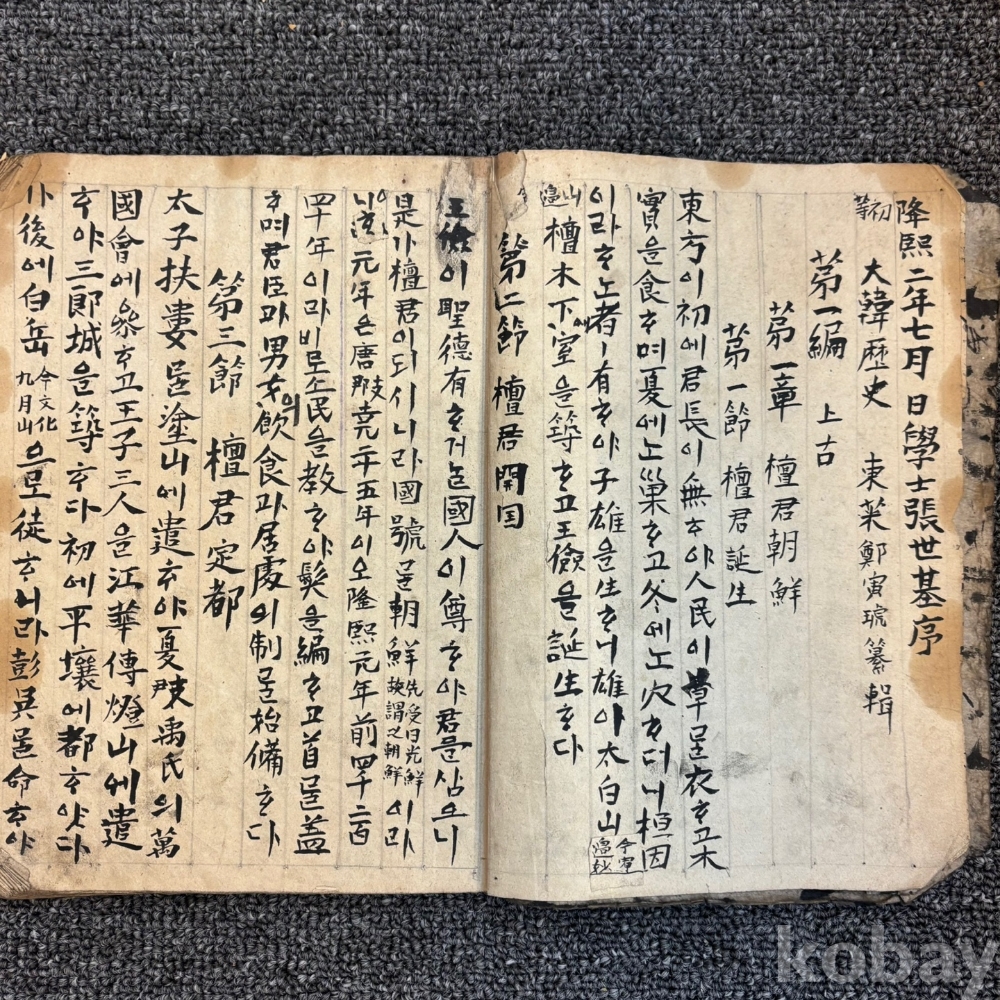 隆熙二年七月 日學士張世基序
初等 大韓歷史 東萊鄭寅琥纂輯
第一編 上古
第一章 檀君朝鮮
第一節 檀君誕生
東方이初에君長이無ᄒᆞ야人民이草로衣ᄒᆞ고木
實을食ᄒᆞ며夏에ᄂᆞᆫ巢ᄒᆞ고冬에ᄂᆞᆫ穴ᄒᆞ더니桓因
이라ᄒᆞᄂᆞᆫ者ㅣ有ᄒᆞ야子雄을生ᄒᆞ니雄이太白山 今寧邊妙
山 檀木下에室을築ᄒᆞ고王儉을誕生ᄒᆞ다
第二節 檀君開国
王儉이聖德有ᄒᆞ거ᄂᆞᆯ國人이尊ᄒᆞ야君을삼으니
是가檀君이되시니라國號ᄅᆞᆯ朝鮮 先受日光鮮故謂之朝鮮 이라
ᄒᆞ니元年은唐堯二十五年이오隆熙元年前四千二百
四十年이라비로소民을敎ᄒᆞ야髮을編ᄒᆞ고首ᄅᆞᆯ盖
ᄒᆞ며君臣과男女의飮食과居處의制ᄅᆞᆯ始備ᄒᆞ다
第三節 檀君定都
太子扶婁ᄅᆞᆯ塗山에遣ᄒᆞ야夏禹氏의萬
國會에參ᄒᆞ고王子三人을江華傳燈山에遣
ᄒᆞ야三郞城을築ᄒᆞ다初에平壤에都ᄒᆞ얏다
가後에白岳 今文化九月山 으로徒ᄒᆞ니라彭吳ᄅᆞᆯ命ᄒᆞ야
kobay